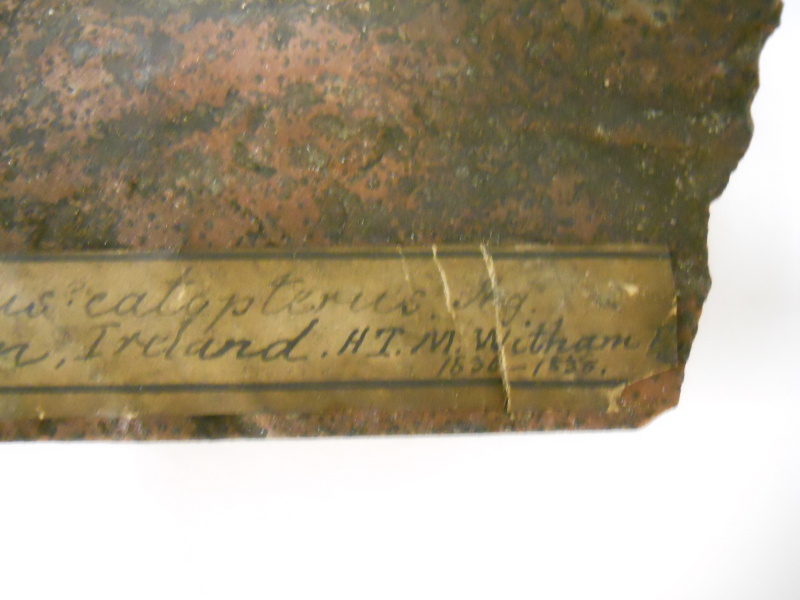 us? catopterus. Ag.
n, Ireland. H.T.M. Witham E
1836–1838.